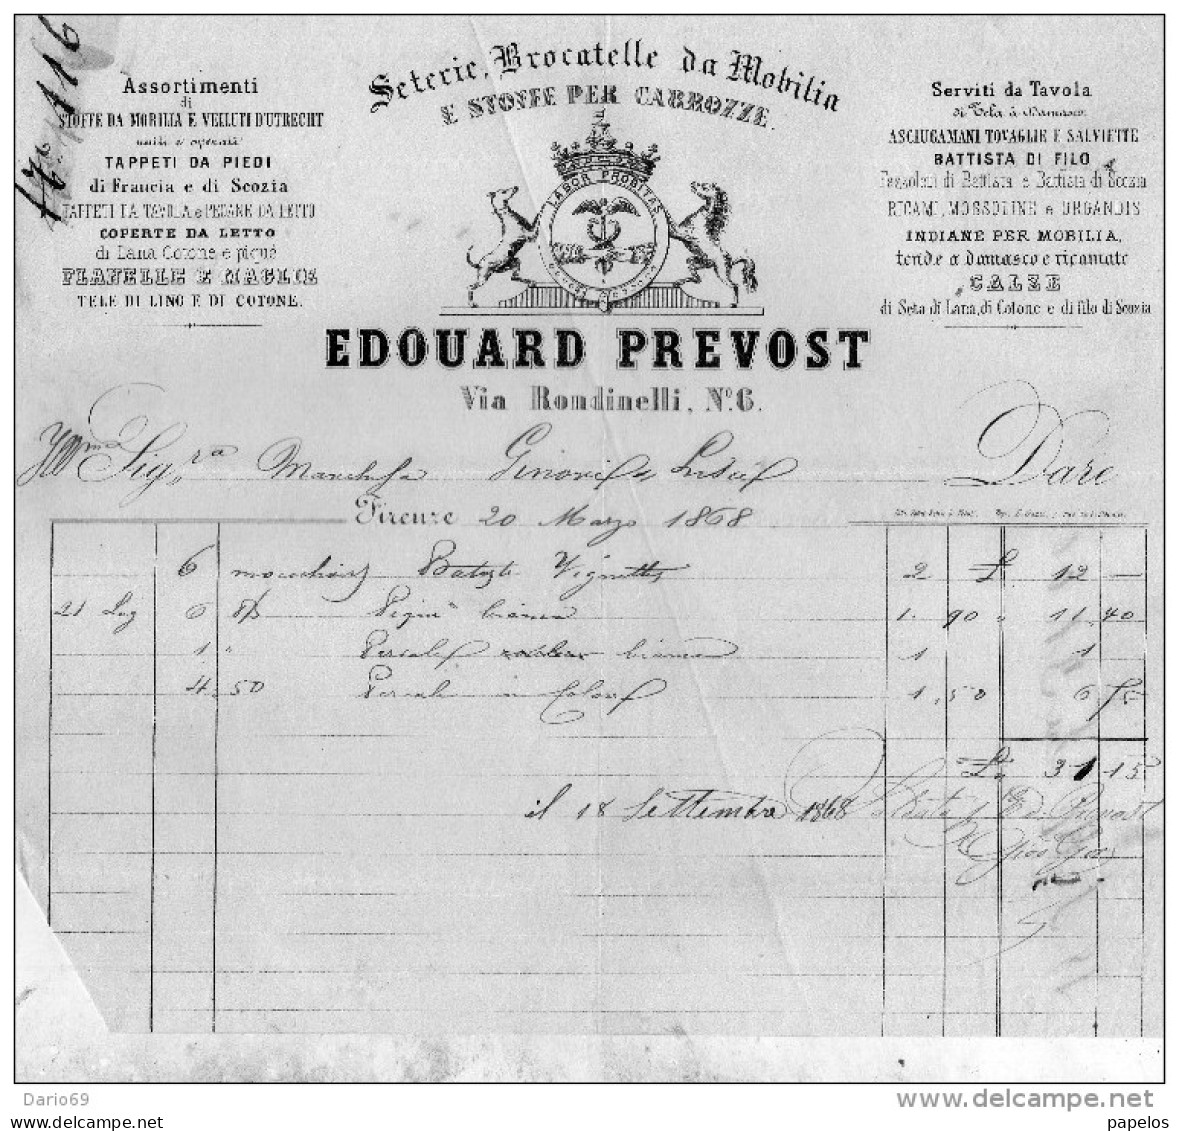 Seterie, Brocatelle da Mobilia
E STOFFE PER CARROZZE.
LABOR PROBITAS
Assortimenti
di
STOFFE DA MOBILIA E VELLUTI D'UTRECHT
uniti e operati
TAPPETI DA PIEDI
di Francia e di Scozia
TAPPETI DA TAVOLA e PEDANE DA LETTO
COPERTE DA LETTO
di Lana Cotone e piqué
FLANELLE E MAGLIE
TELE DI LINO E DI COTONE.
Serviti da Tavola
di Tela à Damasco
ASCIUGAMANI TOVAGLIE E SALVIETTE
BATTISTA DI FILO
Fazzoletti di Battista e Battista di Scozia
RICAMI, MOSSOLINE e ORGANDIS
INDIANE PER MOBILIA,
tende a damasco e ricamate
CALZE
di Seta di Lana, di Cotone e di filo di Scozia
EDOUARD PREVOST
Via Rondinelli, N° 6.
Ill.ma Sig.ra Ginori Dare
Firenze 20 Marzo 1868
6 Batista Vignettes 2 £ 12 —
21 Lug 6 Piqué bianca 1. 90 " 11 40
1 " bianca 1 1
4. 50 Percale in 1, 50 6 75
£ 31 15
il 18 Settembre 1868 Saldata p Ed. Prevost
Dario69
www.delcampe.net
papelos